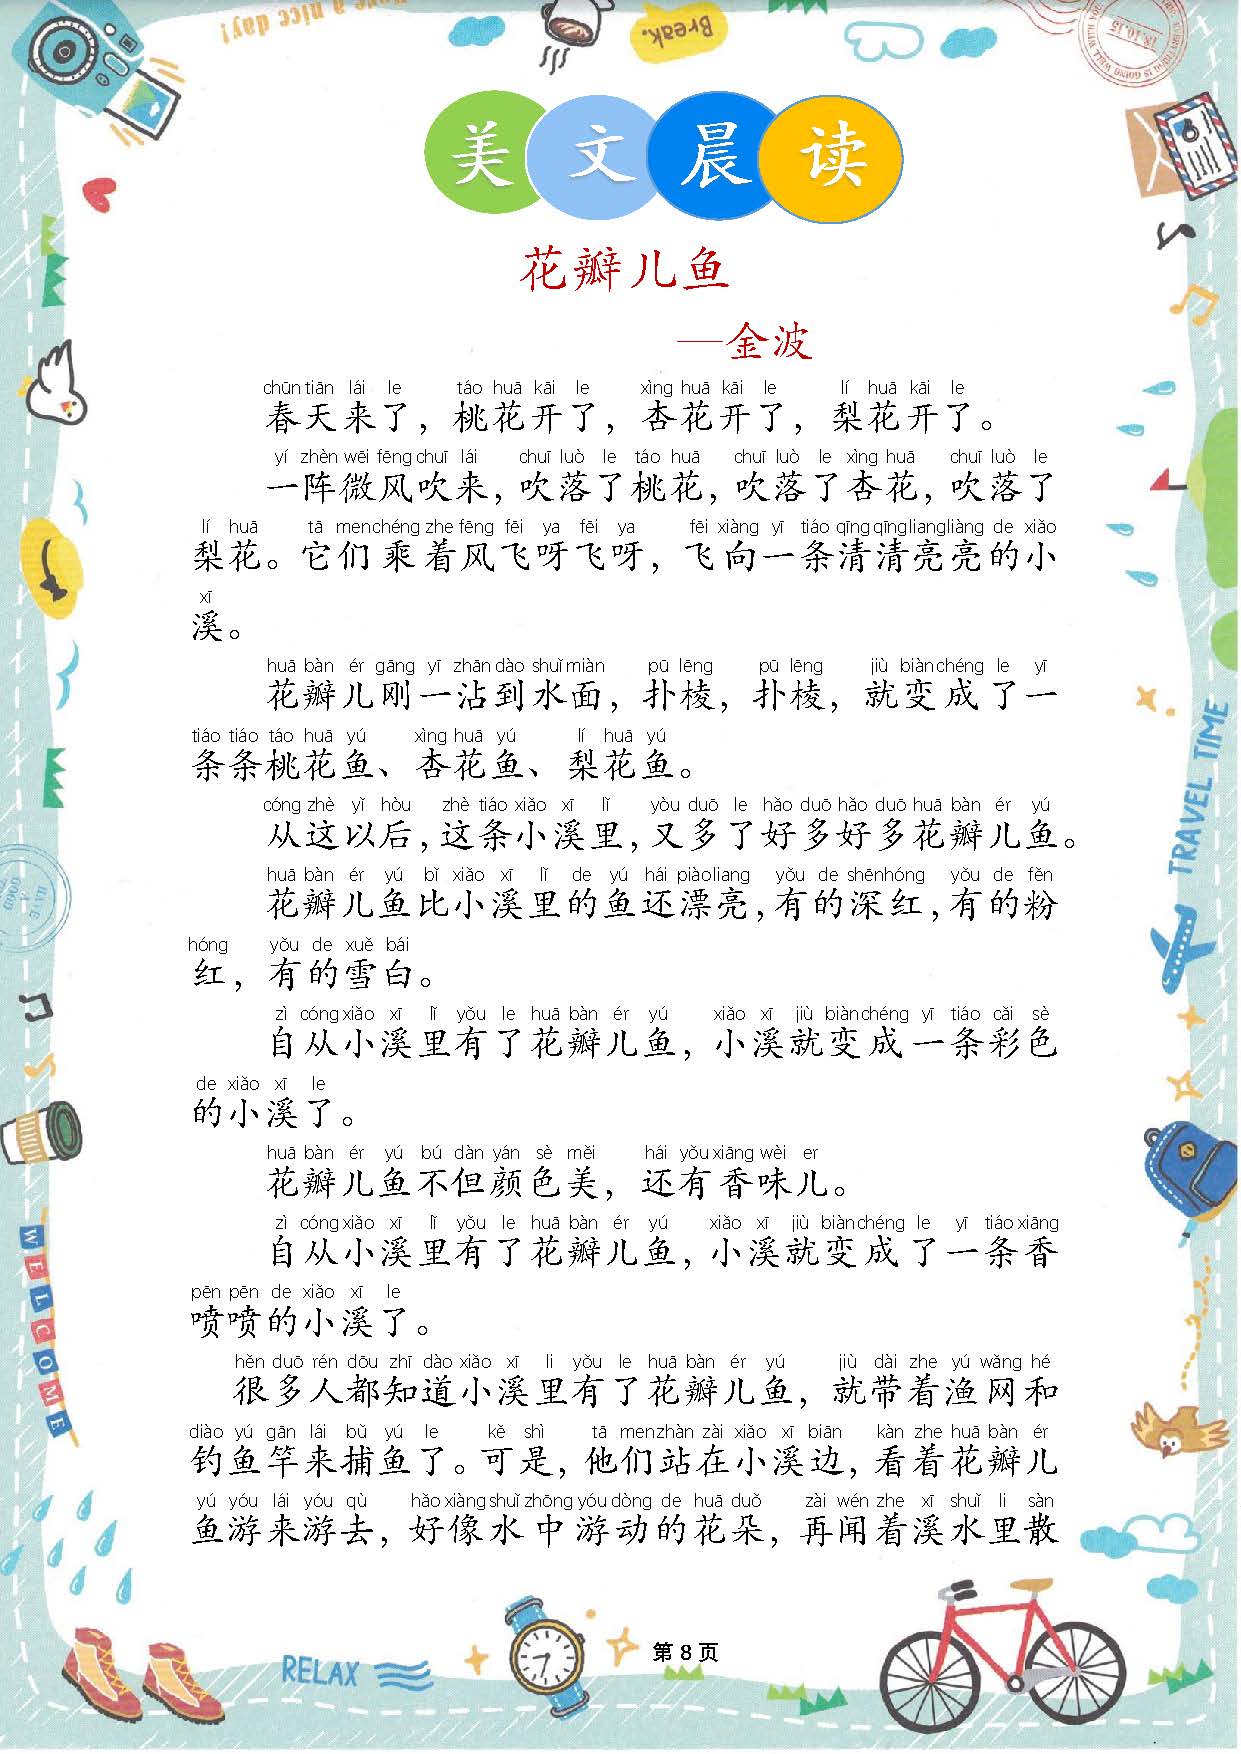 have a nice day!
Break.
18.10.15
美文晨读
花瓣儿鱼
—金波
chūn tiān lái le táo huā kāi le xìng huā kāi le lí huā kāi le
春天来了，桃花开了，杏花开了，梨花开了。
yí zhèn wēi fēng chuī lái chuī luò le táo huā chuī luò le xìng huā chuī luò le
一阵微风吹来，吹落了桃花，吹落了杏花，吹落了
lí huā tā men chéng zhe fēng fēi ya fēi ya fēi xiàng yī tiáo qīng qīng liang liàng de xiǎo
梨花。它们乘着风飞呀飞呀，飞向一条清清亮亮的小
xī
溪。
huā bàn ér gāng yī zhān dào shuǐ miàn pū lēng pū lēng jiù biàn chéng le yī
花瓣儿刚一沾到水面，扑棱，扑棱，就变成了一
tiáo tiáo táo huā yú xìng huā yú lí huā yú
条条桃花鱼、杏花鱼、梨花鱼。
cóng zhè yǐ hòu zhè tiáo xiǎo xī lǐ yòu duō le hǎo duō hǎo duō huā bàn ér yú
从这以后，这条小溪里，又多了好多好多花瓣儿鱼。
huā bàn ér yú bǐ xiǎo xī lǐ de yú hái piào liang yǒu de shēn hóng yǒu de fěn
花瓣儿鱼比小溪里的鱼还漂亮，有的深红，有的粉
hóng yǒu de xuě bái
红，有的雪白。
zì cóng xiǎo xī lǐ yǒu le huā bàn ér yú xiǎo xī jiù biàn chéng yī tiáo cǎi sè
自从小溪里有了花瓣儿鱼，小溪就变成一条彩色
de xiǎo xī le
的小溪了。
huā bàn ér yú bú dàn yán sè měi hái yǒu xiāng wèi er
花瓣儿鱼不但颜色美，还有香味儿。
zì cóng xiǎo xī lǐ yǒu le huā bàn ér yú xiǎo xī jiù biàn chéng le yī tiáo xiāng
自从小溪里有了花瓣儿鱼，小溪就变成了一条香
pēn pēn de xiǎo xī le
喷喷的小溪了。
hěn duō rén dōu zhī dào xiǎo xī li yǒu le huā bàn ér yú jiù dài zhe yú wǎng hé
很多人都知道小溪里有了花瓣儿鱼，就带着渔网和
diào yú gān lái bǔ yú le kě shì tā men zhàn zài xiǎo xī biān kàn zhe huā bàn ér
钓鱼竿来捕鱼了。可是，他们站在小溪边，看着花瓣儿
yú yóu lái yóu qù hǎo xiàng shuǐ zhōng yóu dòng de huā duǒ zài wén zhe xī shuǐ li sàn
鱼游来游去，好像水中游动的花朵，再闻着溪水里散
TRAVEL TIME
WELCOME
RELAX
第 8 页